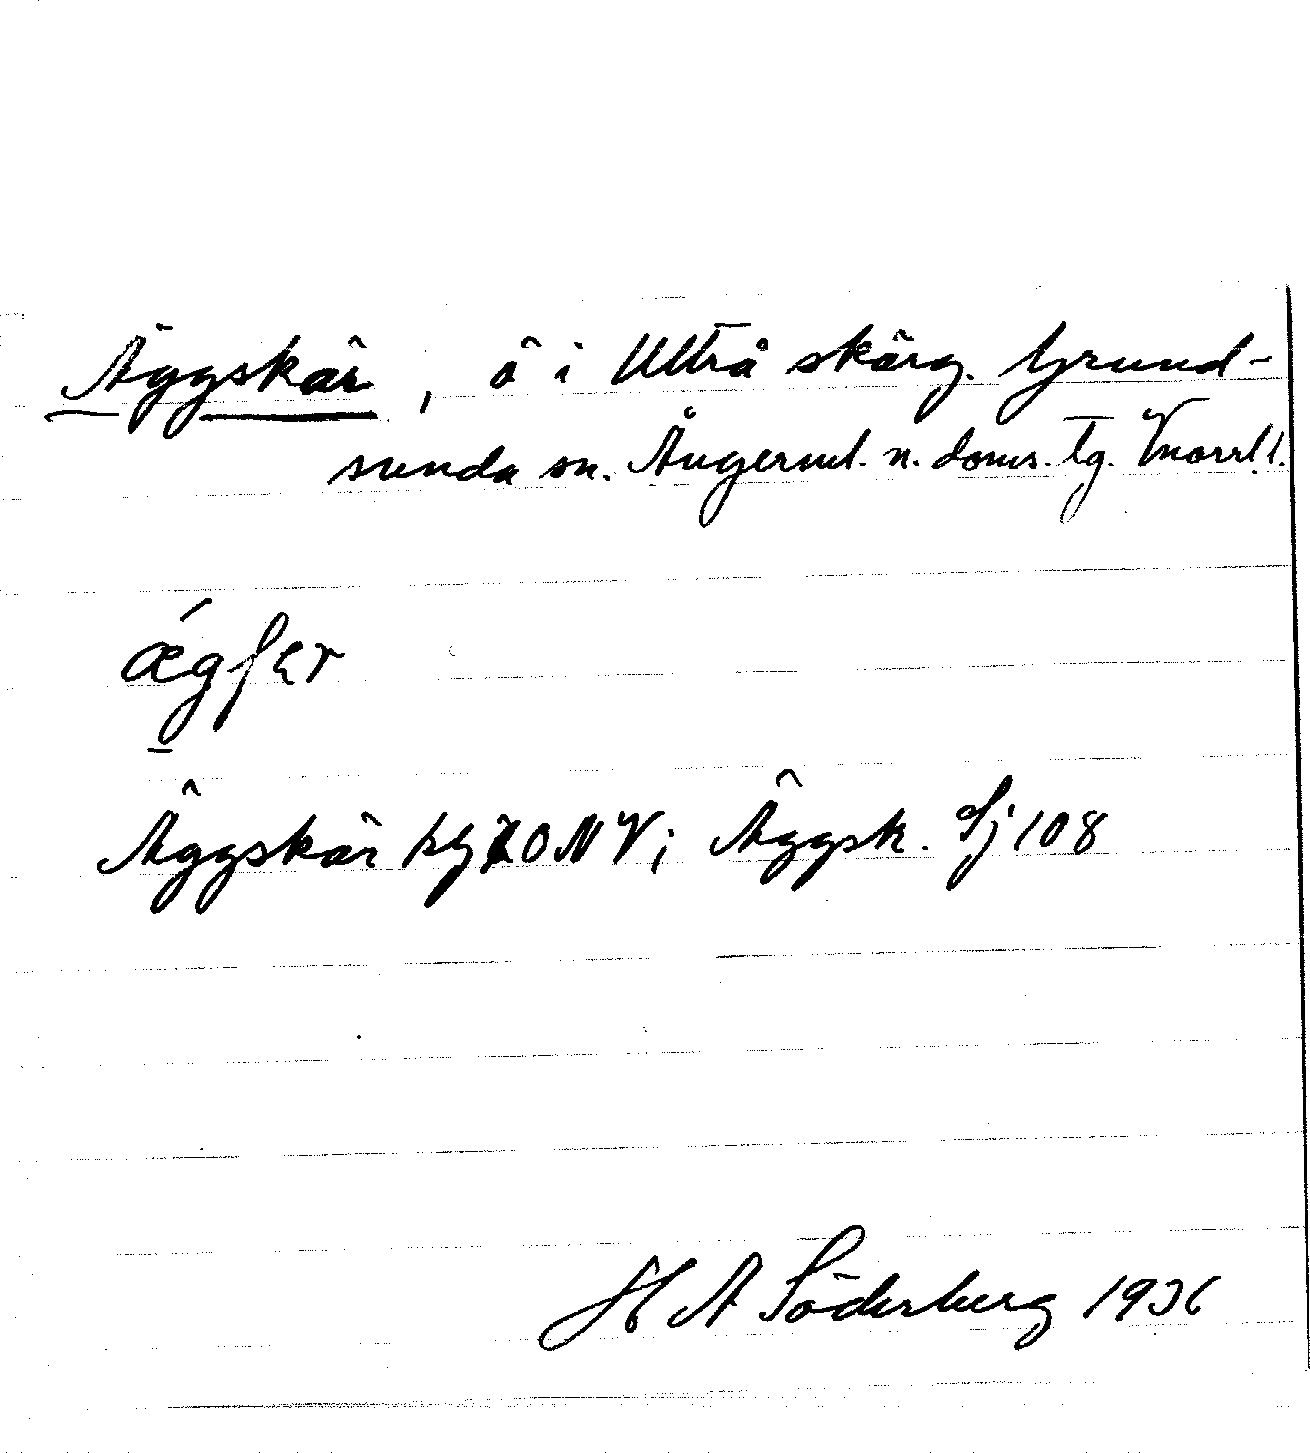 Äggskär, ö i Ultrå skärg. Grund-
sunda sn. Ångerml. n. doms. tg. Vnorrl l.
Äggskär 70 NV; Äggsk. Sj 108
H A Söderberg 1936